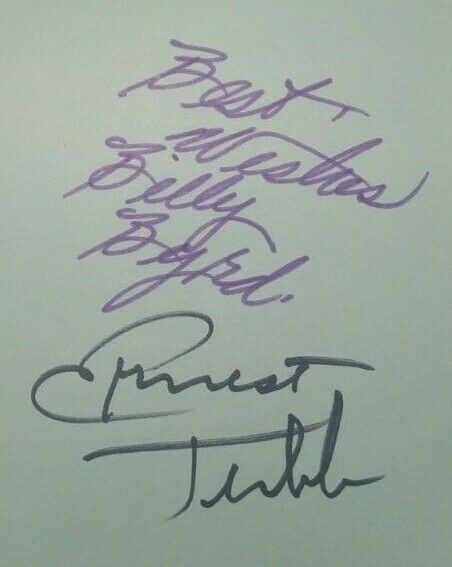 Best
Wishes
Billy
Byrd.
Ernest
Tubb